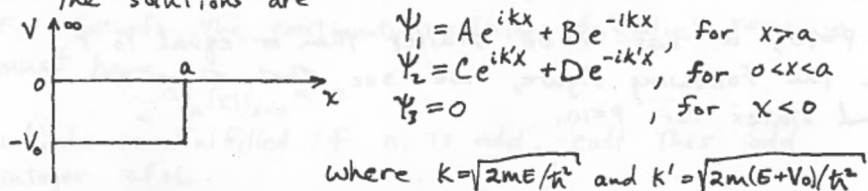 The solutions are
V ∞
ψ₁ = Ae^{ikx} + Be^{-ikx}, for x>a
a
ψ₂ = Ce^{ik'x} + De^{-ik'x}, for 0<x<a
0
x
ψ₃ = 0 , for x<0
-V₀
where k=√2mE/ħ² and k'=√2m(E+V₀)/ħ²